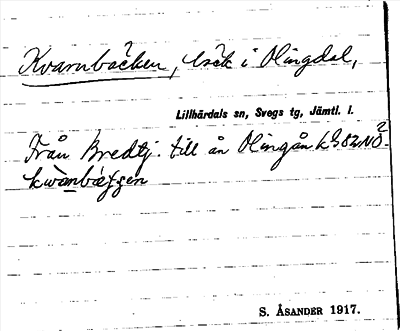 Kvarnbäcken, bäck i Olingdal,
Lillhärdals sn, Svegs tg, Jämtl. l.
Från Bredtj. till ån Olingån
S. ÅSANDER 1917.